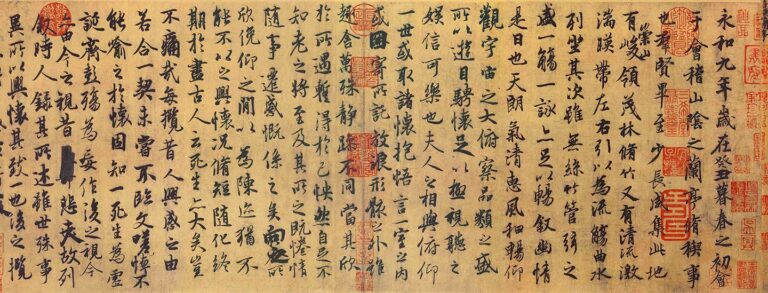 永和九年歲在癸丑暮春之初會
于會稽山陰之蘭亭脩稧事
也羣賢畢至少長咸集此地
有崇山峻領茂林脩竹又有清流激
湍暎帶左右引以為流觴曲水
列坐其次雖無絲竹管弦之
盛一觴一詠亦足以暢敘幽情
是日也天朗氣清惠風和暢仰
觀宇宙之大俯察品類之盛
所以遊目騁懷足以極視聽之
娛信可樂也夫人之相與俯仰
一世或取諸懷抱悟言一室之內
或因寄所託放浪形骸之外雖
趣舍萬殊靜躁不同當其欣
於所遇蹔得於己怏然自足不
知老之將至及其所之既惓情
隨事遷感慨係之矣向之所
欣俛仰之閒以為陳迹猶不
能不以之興懷況脩短隨化終
期於盡古人云死生亦大矣豈
不痛哉每攬昔人興感之由
若合一契未嘗不臨文嗟悼不
能喻之於懷固知一死生為虛
誕齊彭殤為妄作後之視今
亦由今之視昔悲夫故列
敘時人錄其所述雖世殊事
異所以興懷其致一也後之攬